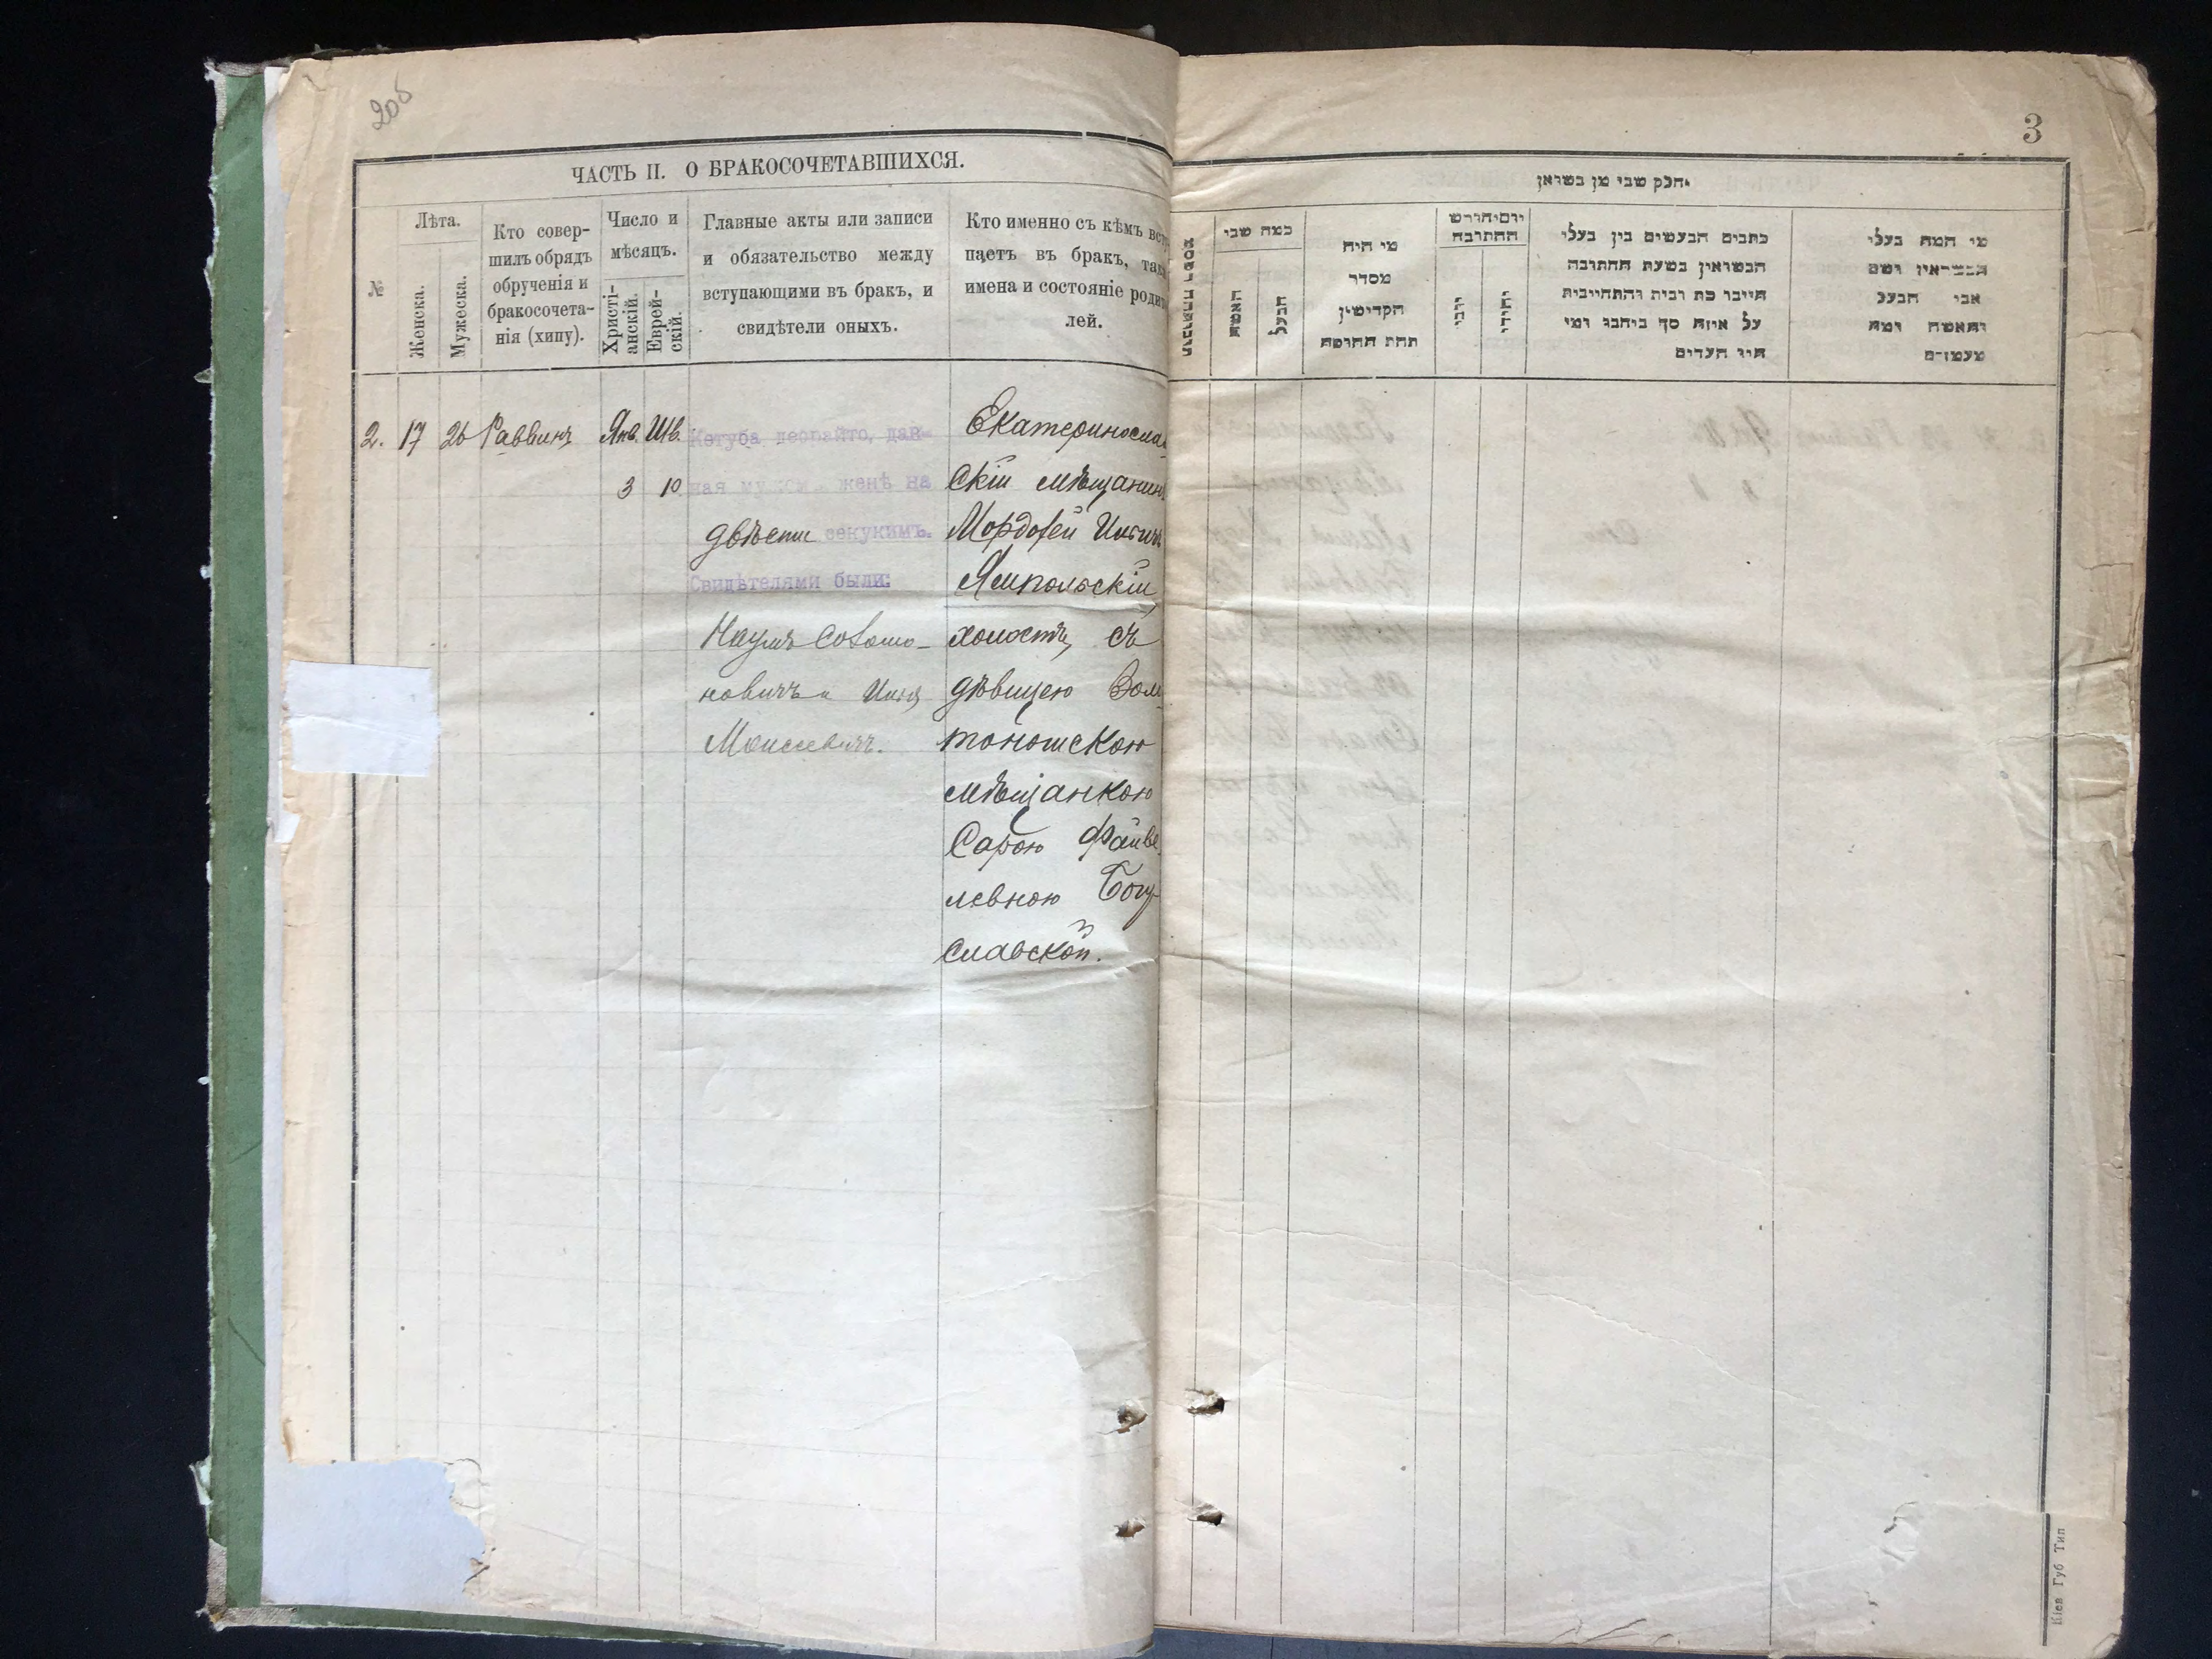 20об
3
ЧАСТЬ II. О БРАКОСОЧЕТАВШИХСЯ.
№
Лѣта.
Женска.
Мужеска.
Кто совер-
шилъ обрядъ
обрученія и
бракосочета-
нія (хипу).
Число и
мѣсяцъ.
Христі-
анскій.
Еврей-
скій.
Главные акты или записи
и обязательство между
вступающими въ бракъ, и
свидѣтели оныхъ.
Кто именно съ кѣмъ всту
паетъ въ бракъ, так
имена и состояніе родит
лей.
2. 17 26 Раввинъ Янв. Шв.
3 10
Кетуба деорайто, дан-
ная мужем женѣ на
двѣсти зекукимъ.
Свидѣтелями были:
Наумъ Соломо-
новичъ и
Моисеевичъ.
Екатеринослав
скій мѣщанинъ
Мордхей
Ямпольскій,
холостъ, съ
дѣвицею Золо
тоношскою
мѣщанкою
Сарою Файве
левною Богу-
славской.
חלק שני מן נשואין
כמה שני
האשה
הבעל
מי היה
מסדר
הקדושין
תחת החופה
יום וחודש
החתונה
יוני
יהודי
כתבים הנעשים בין בעלי
הנשואין בשעת החתונה
חייבו כת ובית והתחייבות
על איזה סך ביחבו ומי
היו העדים
מי המה בעלי
הנשואין ושם
אבי הבעל
והאשה ומה
מעמדם
Кіев Губ Тип